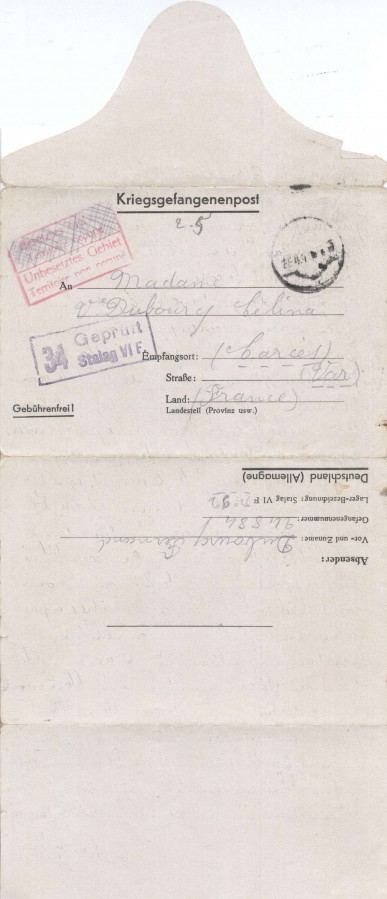 Kriegsgefangenenpost
2-5
Unbesetztes Gebiet
Territoire non occupé
An Madame
Vve Dubourg Célina
34 Geprüft
Stalag VI F.
Empfangsort: (Carcès)
Straße: (Var)
Land: (France)
Landesteil (Provinz usw.)
Gebührenfrei!
Absender:
Vor- und Zuname: Dubourg Fernand
Gefangenennummer:
Lager-Bezeichnung: Stalag VI F
Deutschland (Allemagne)